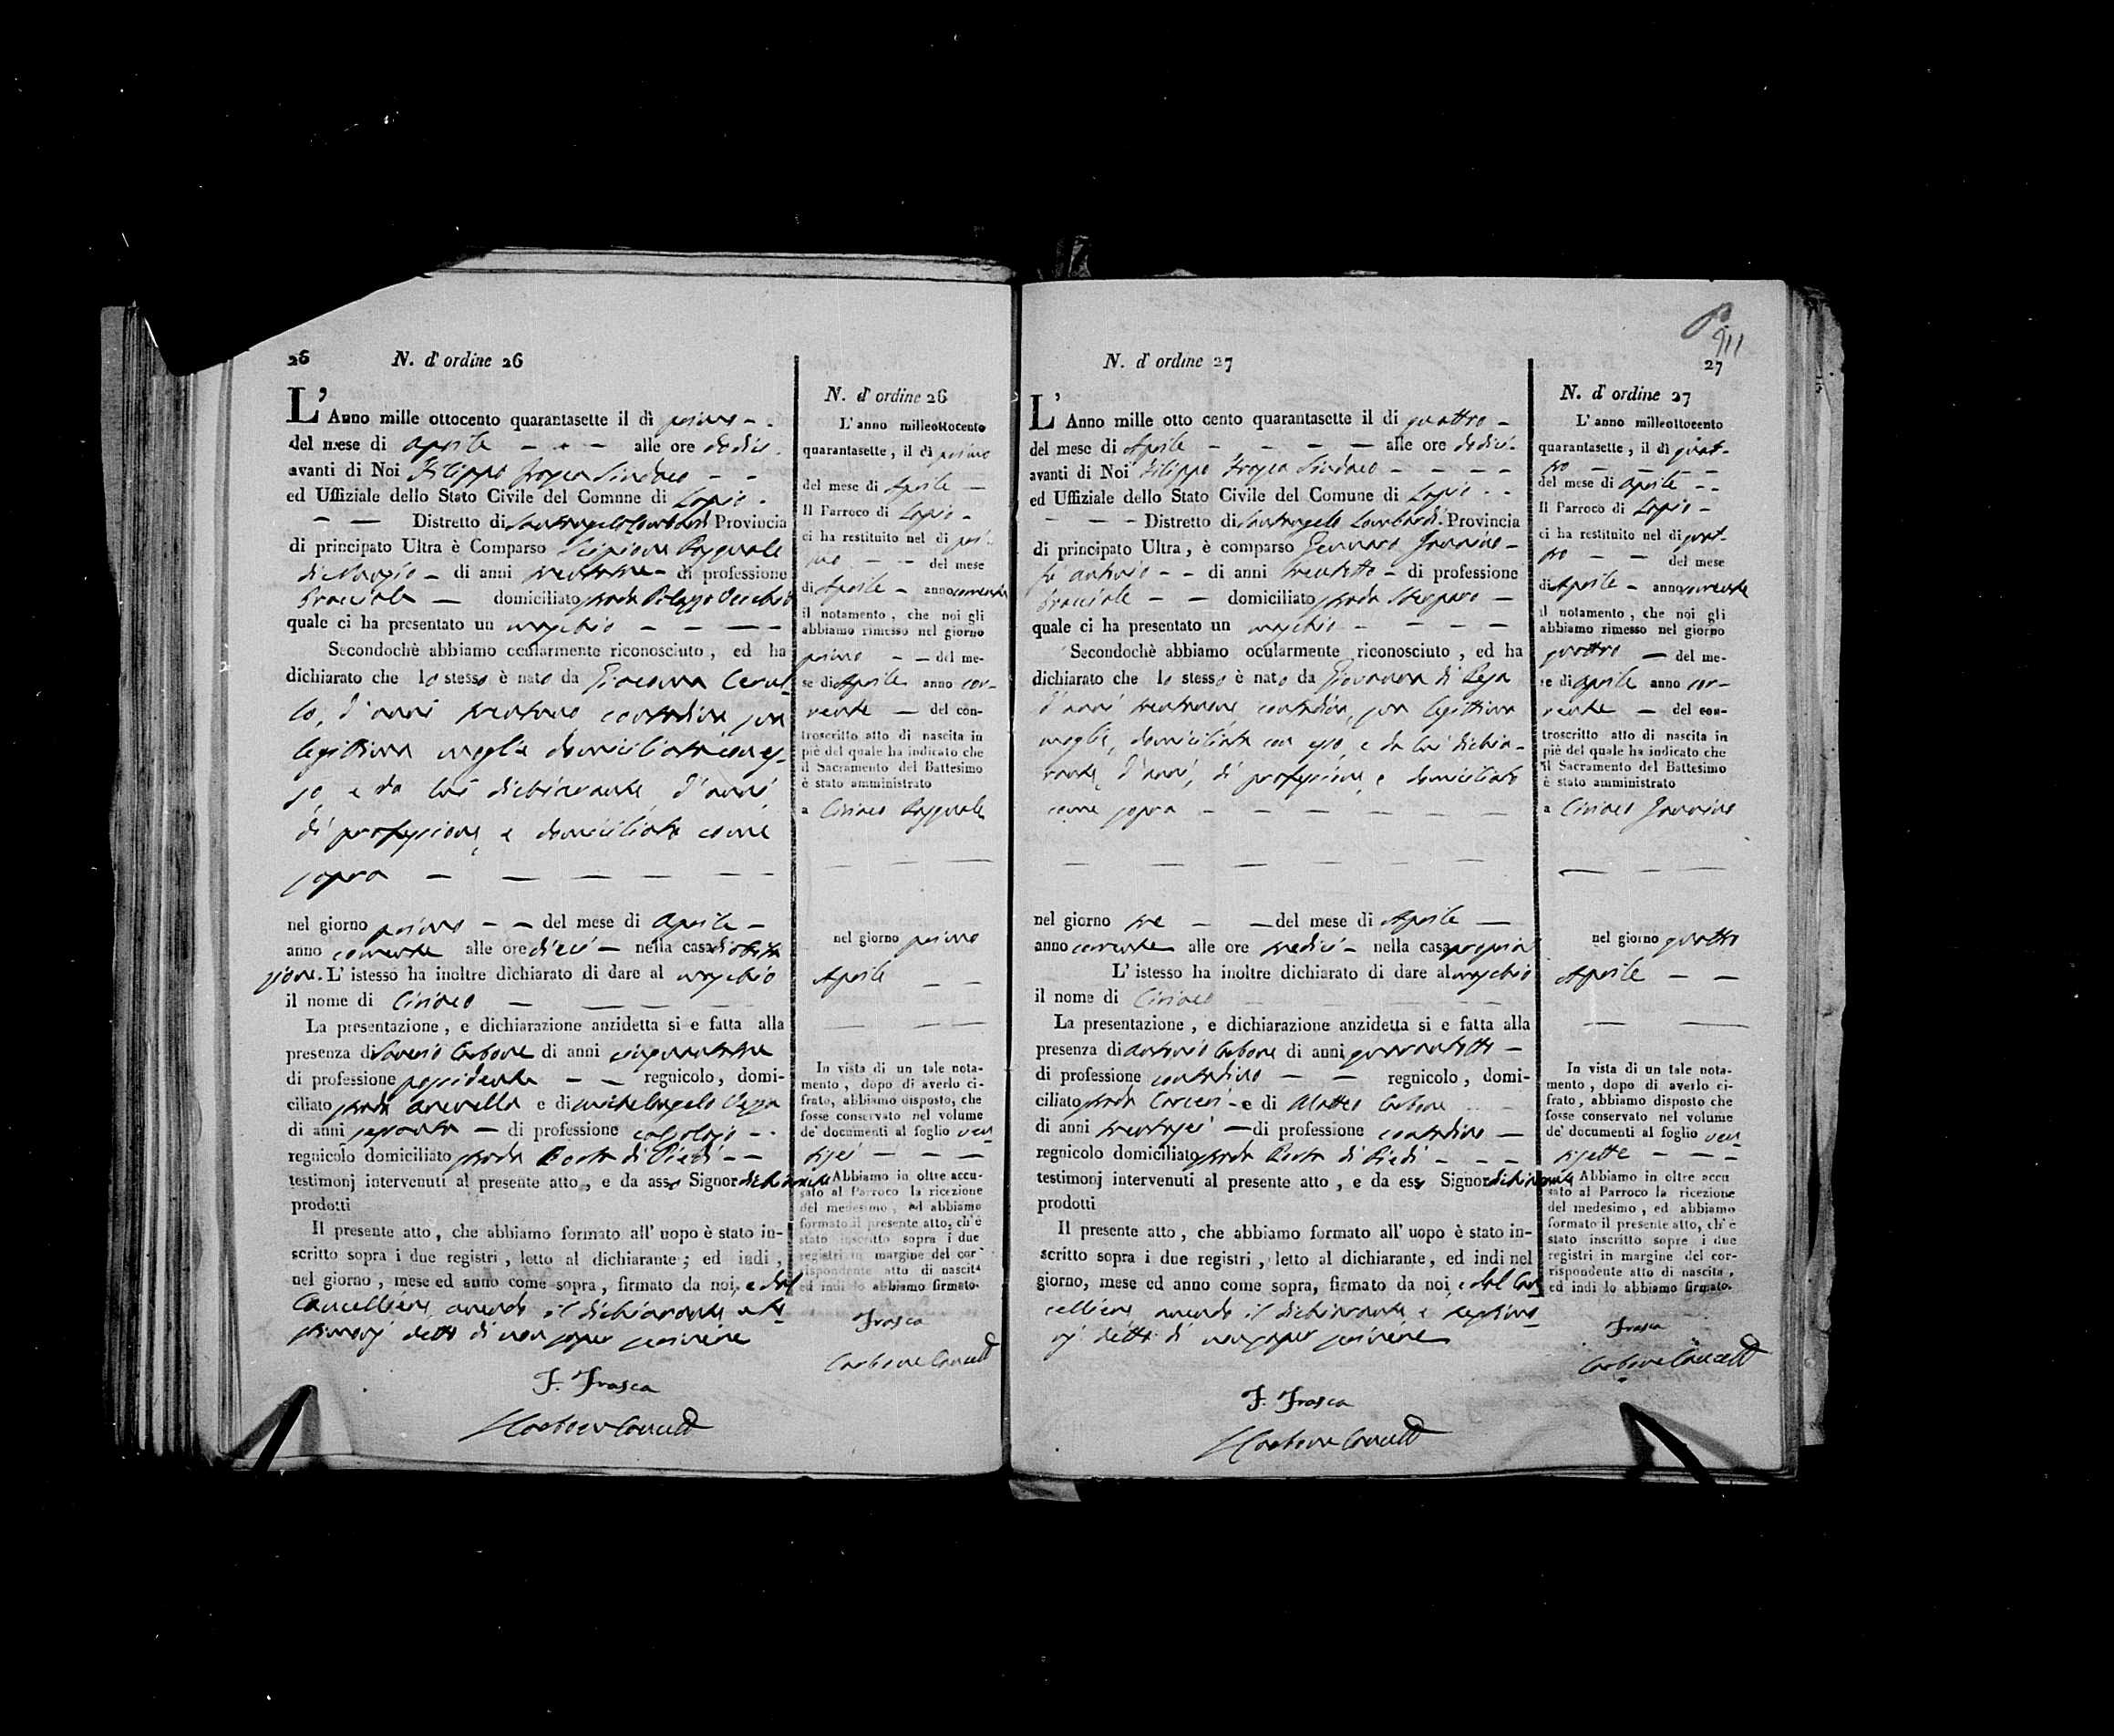 26 N. d' ordine 26
L' Anno mille ottocento quarantasette il dì primo - -
del mese di Aprile - - - alle ore dodici
avanti di Noi Filippo Frasca Sindaco - -
ed Uffiziale dello Stato Civile del Comune di Lapio -
- - Distretto di Santangelo Lombardi Provincia
di principato Ultra è Comparso Scipione Pasquale
di - di anni - di professione
Bracciale - domiciliato strada Palazzo Vecchio
quale ci ha presentato un maschio - - - -
Secondochè abbiamo ocularmente riconosciuto, ed ha
dichiarato che lo stesso è nato da Giacoma Cerul-
lo, d'anni contadina sua
legittima moglie domiciliata con es-
so e da lui dichiarante, d'anni,
di professione, e domiciliato come
sopra - - - - - -
nel giorno primo - - del mese di Aprile -
anno corrente alle ore dieci - nella casa di abita
zione. L' istesso ha inoltre dichiarato di dare al maschio
il nome di Ciriaco - - - -
La presentazione, e dichiarazione anzidetta si e fatta alla
presenza di Saverio Carbone di anni cinquantatre
di professione possidente - - regnicolo, domi-
ciliato strada e di Michelangelo
di anni sessanta - di professione calzolajo - -
regnicolo domiciliato strada Porta di Piedi - -
testimonj intervenuti al presente atto, e da ass. Signor dichiarante
prodotti
Il presente atto, che abbiamo formato all' uopo è stato in-
scritto sopra i due registri, letto al dichiarante; ed indi,
nel giorno, mese ed anno come sopra, firmato da noi, e dal
Cancelliere, avendo il dichiarante e te-
stimonj detto di non saper scrivere
F. Frasca
Carbone Cancell
N. d' ordine 26
L' anno milleottocento
quarantasette, il dì primo
del mese di Aprile -
Il Parroco di Lapio -
ci ha restituito nel di pri-
mo - - del mese
di Aprile - anno corrente
il notamento, che noi gli
abbiamo rimesso nel giorno
primo - - del me-
se di Aprile anno cor-
rente - del con-
troscritto atto di nascita in
piè del quale ha indicato che
il Sacramento del Battesimo
è stato amministrato
a Ciriaco Pasquale
- - -
nel giorno primo
Aprile - -
- - -
In vista di un tale nota-
mento, dopo di averlo ci-
frato, abbiamo disposto, che
fosse conservato nel volume
de' documenti al foglio ven
tisei - - -
Abbiamo in oltre accu-
sato al Parroco la ricezione
del medesimo, ed abbiamo
formato il presente atto, ch'è
stato inscritto sopra i due
registri in margine del cor-
rispondente atto di nascita
ed indi lo abbiamo firmato.
Frasca
Carbone Cancell
911
N. d' ordine 27 27
L' Anno mille otto cento quarantasette il di quattro -
del mese di Aprile - - - - alle ore dodici -
avanti di Noi Filippo Frasca Sindaco - - - -
ed Uffiziale dello Stato Civile del Comune di Lapio - -
- - - Distretto di Santangelo Lombardi Provincia
di principato Ultra, è comparso Gennaro Iannino -
fu Antonio - - di anni trentotto - di professione
Bracciale - - domiciliato strada -
quale ci ha presentato un maschio - - - -
Secondochè abbiamo ocularmente riconosciuto, ed ha
dichiarato che lo stesso è nato da Giovanna di
d'anni contadina, sua legittima
moglie, domiciliata con esso, e da lui dichia-
rante, d'anni, di professione, e domiciliato
come sopra - - - - - -
- - - - - - -
nel giorno tre - - del mese di Aprile -
anno corrente alle ore tredici - nella casa propria
L' istesso ha inoltre dichiarato di dare al maschio
il nome di Ciriaco
La presentazione, e dichiarazione anzidetta si e fatta alla
presenza di Antonio Carbone di anni quarantotto -
di professione contadino - - regnicolo, domi-
ciliato strada Carceri - e di Matteo Carbone
di anni trentasei - di professione contadino -
regnicolo domiciliato strada Porta di Piedi - - -
testimonj intervenuti al presente atto, e da ess. Signor dichiarante
prodotti
Il presente atto, che abbiamo formato all' uopo è stato in-
scritto sopra i due registri, letto al dichiarante, ed indi nel
giorno, mese ed anno come sopra, firmato da noi, e dal Can
celliere, avendo il dichiarante e testimo-
nj detto di non saper scrivere
F. Frasca
Carbone Cancell
N. d' ordine 27
L' anno milleottocento
quarantasette, il dì quat-
tro - - - -
del mese di Aprile - -
Il Parroco di Lapio -
ci ha restituito nel di quat-
tro - - del mese
di Aprile - anno corrente
il notamento, che noi gli
abbiamo rimesso nel giorno
quattro - del me-
se di Aprile anno cor-
rente - del con-
troscritto atto di nascita in
piè del quale ha indicato che
il Sacramento del Battesimo
è stato amministrato
a Ciriaco Iannino
- - -
nel giorno quattro
Aprile - -
- -
In vista di un tale nota-
mento, dopo di averlo ci-
frato, abbiamo disposto che
fosse conservato nel volume
de' documenti al foglio ven
tisette - - -
Abbiamo in oltre accu
sato al Parroco la ricezione
del medesimo, ed abbiamo
formato il presente atto, ch'è
stato inscritto sopre i due
registri in margine del cor-
rispondente atto di nascita,
ed indi lo abbiamo firmato.
Frasca
Carbone Cancell